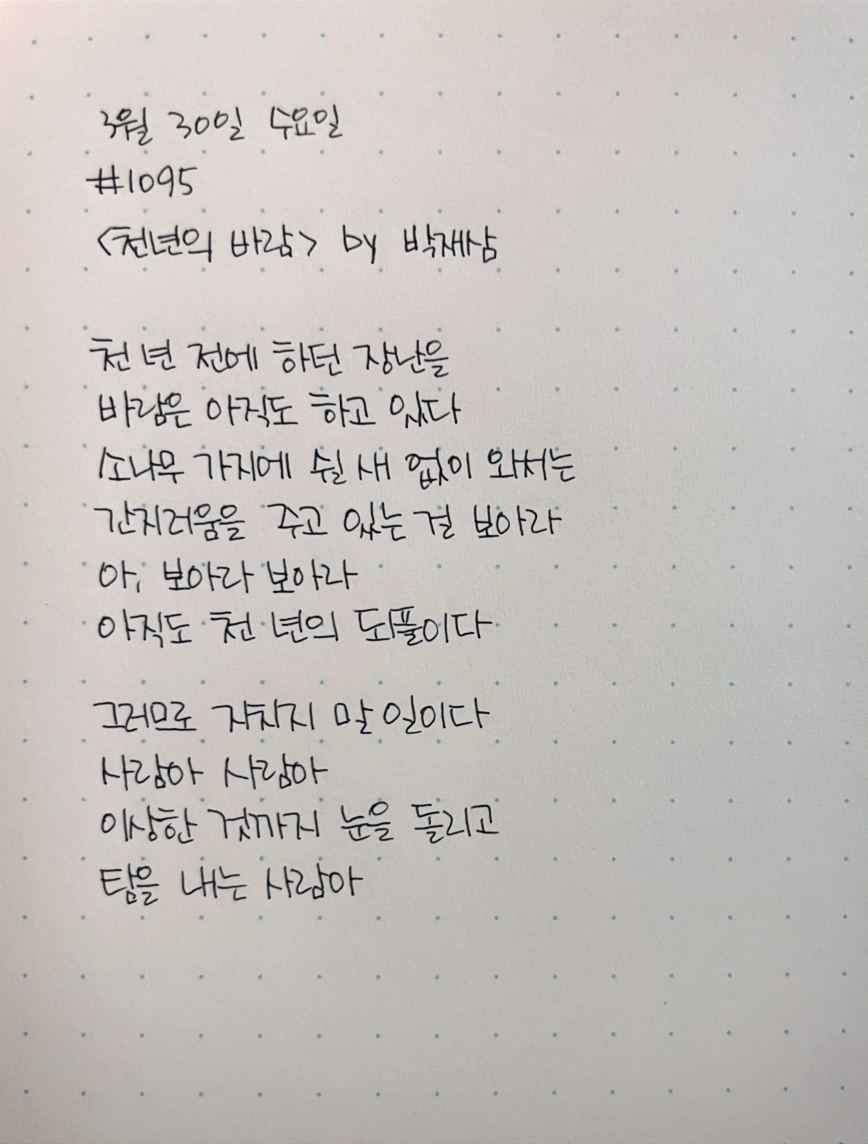 3월 30일 수요일
#1095
<천년의 바람> by 박재삼
천 년 전에 하던 장난을
바람은 아직도 하고 있다
소나무 가지에 쉴 새 없이 와서는
간지러움을 주고 있는 걸 보아라
아, 보아라 보아라
아직도 천 년의 되풀이다
그러므로 지치지 말 일이다
사람아 사람아
이상한 것까지 눈을 돌리고
탐을 내는 사람아